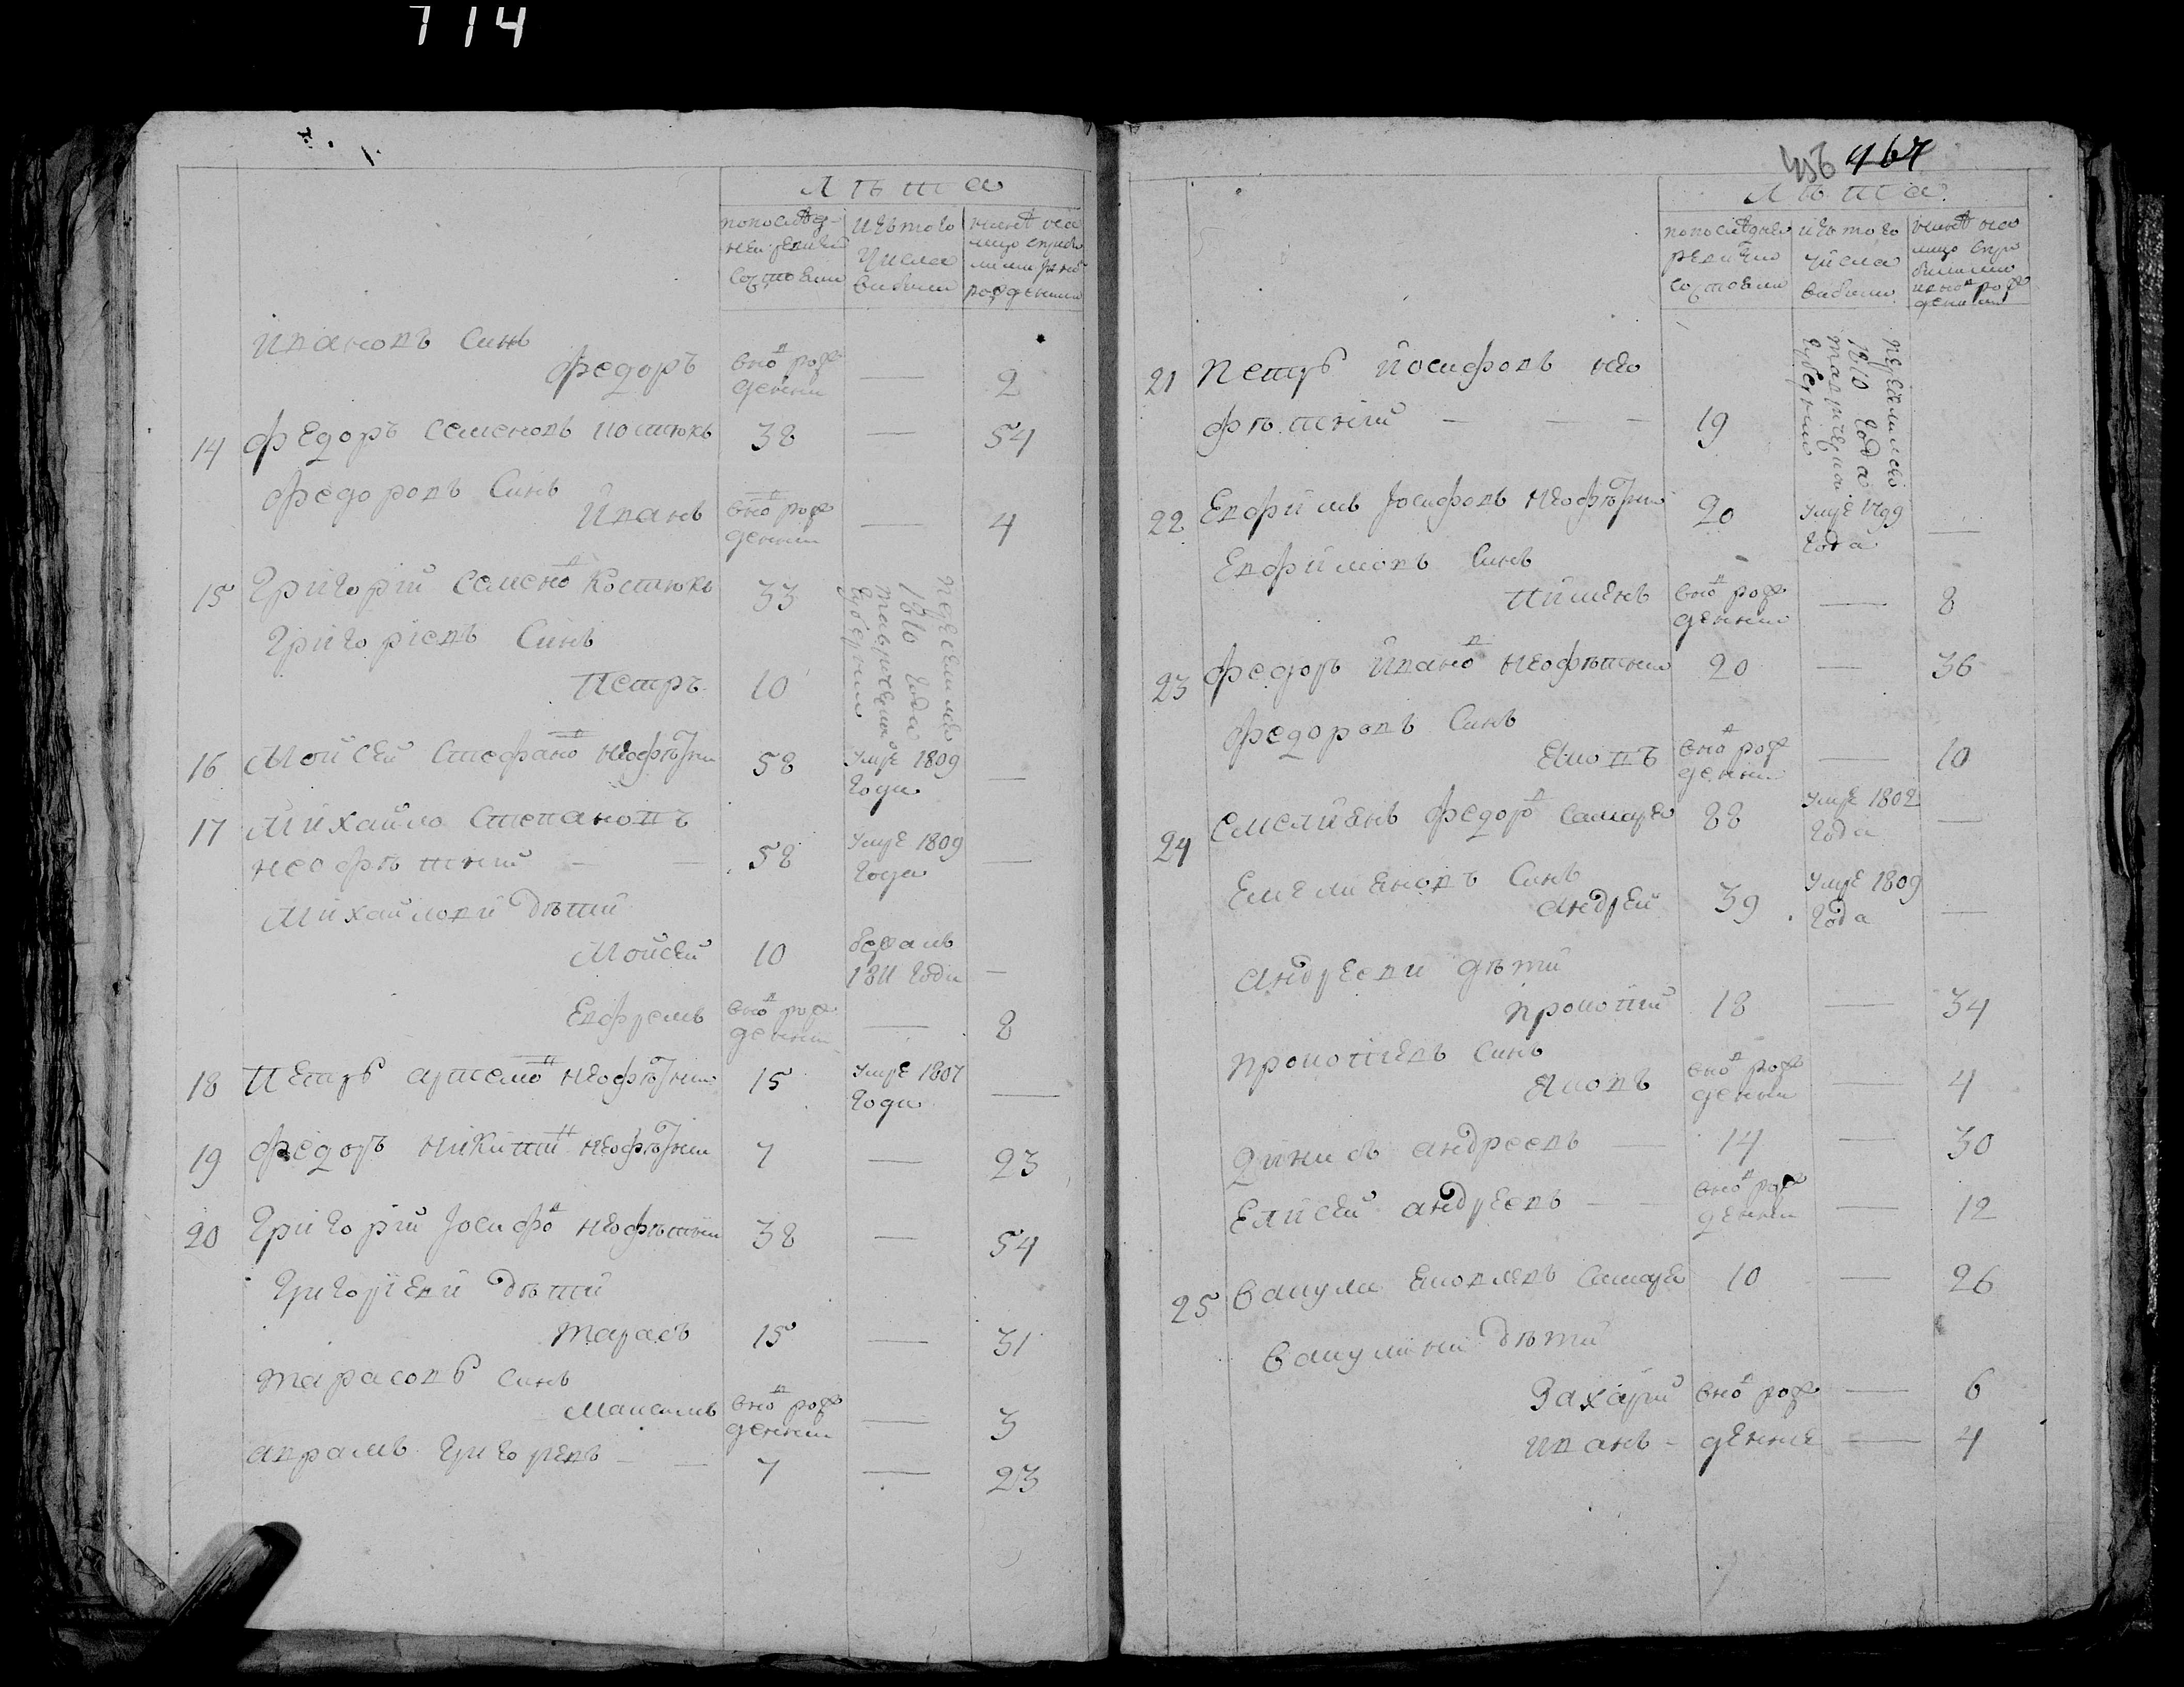 714
Лѣта
попослѣд-
ней ревизіи
состояли
изъ того
числа
выбыли
ныне на
лицо
рожденими
Ивановъ Синъ
Федоръ вновъ рож
денни — 2
14 Федоръ Семеновъ Костюкъ 38 — 54
Федоровъ Синъ
Иванъ вновъ рож
денни — 4
15 Григорій Семеновъ Костюкъ 33
переселился
1810 года
таврической
губерніи
Григоріевъ Синъ
Петръ 10
16 Мойсей Стефановъ Неофѣтній 58 умре 1809
года —
17 Михайло Степановъ
неофѣтній — — 58 умре 1809
года —
Михайлови дѣти
Мойсей 10 бежалъ
1811 года —
Ефремъ вновъ рож
денни — 8
18 Петръ артемовъ Неофѣтній 15 умре 1807
года —
19 Федоръ Никитинъ Неофѣтній 7 — 23
20 Григорій Іосифовъ Неофѣтній 38 — 54
Григоріеви Дѣти
Тарасъ 15 — 31
Тарасовъ Синъ
Максимъ вновъ рож
денни — 3
аврамъ Григоріевъ — — 7 — 23
467
Лѣта
попоследней
ревизіи
состояли
изъ того
числа
выбыли
ныне на
лицо
рож
дении
21 Петръ Йосифовъ Нео
фѣтній — — — 19
переселился
1810 года
таврической
губерніи
22 Евфимъ Іосифовъ Неофѣтній 20 умре 1799
года —
Евфимовъ Синъ
Пименъ вновъ рож
денни — 8
23 Федоръ Ивановъ Неофѣтній 20 — 36
Федоровъ Синъ
Яковъ вновъ рож
денни — 10
24 Емелиянъ Федоровъ 88 умре 1802
года —
Емелияновъ Синъ
андрей 39 умре 1809
года —
Андрееви дѣти
Прокопій 18 — 34
Прокопіевъ Синъ
Яковъ вновъ рож
денни — 4
Динисъ андреевъ — 14 — 30
Елисей андреевъ — — вновъ рож
денни — 12
25 Вакула Яковлевъ 10 — 26
Вакулини Дѣти
Захарій вновъ рож — 6
Иванъ — денние — 4